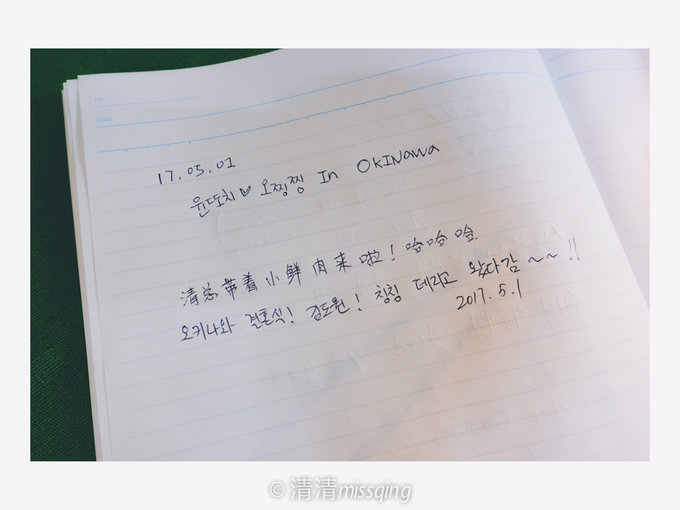 No.
Date
17.05.01
윤또치♥오찡찡 In OKINAWA
清总带着小鲜肉来啦！哈哈哈
오키나와 결혼식! 김도원! 칭칭 데리고 왔다감~~!!
2017.5.1
© 清清missqing